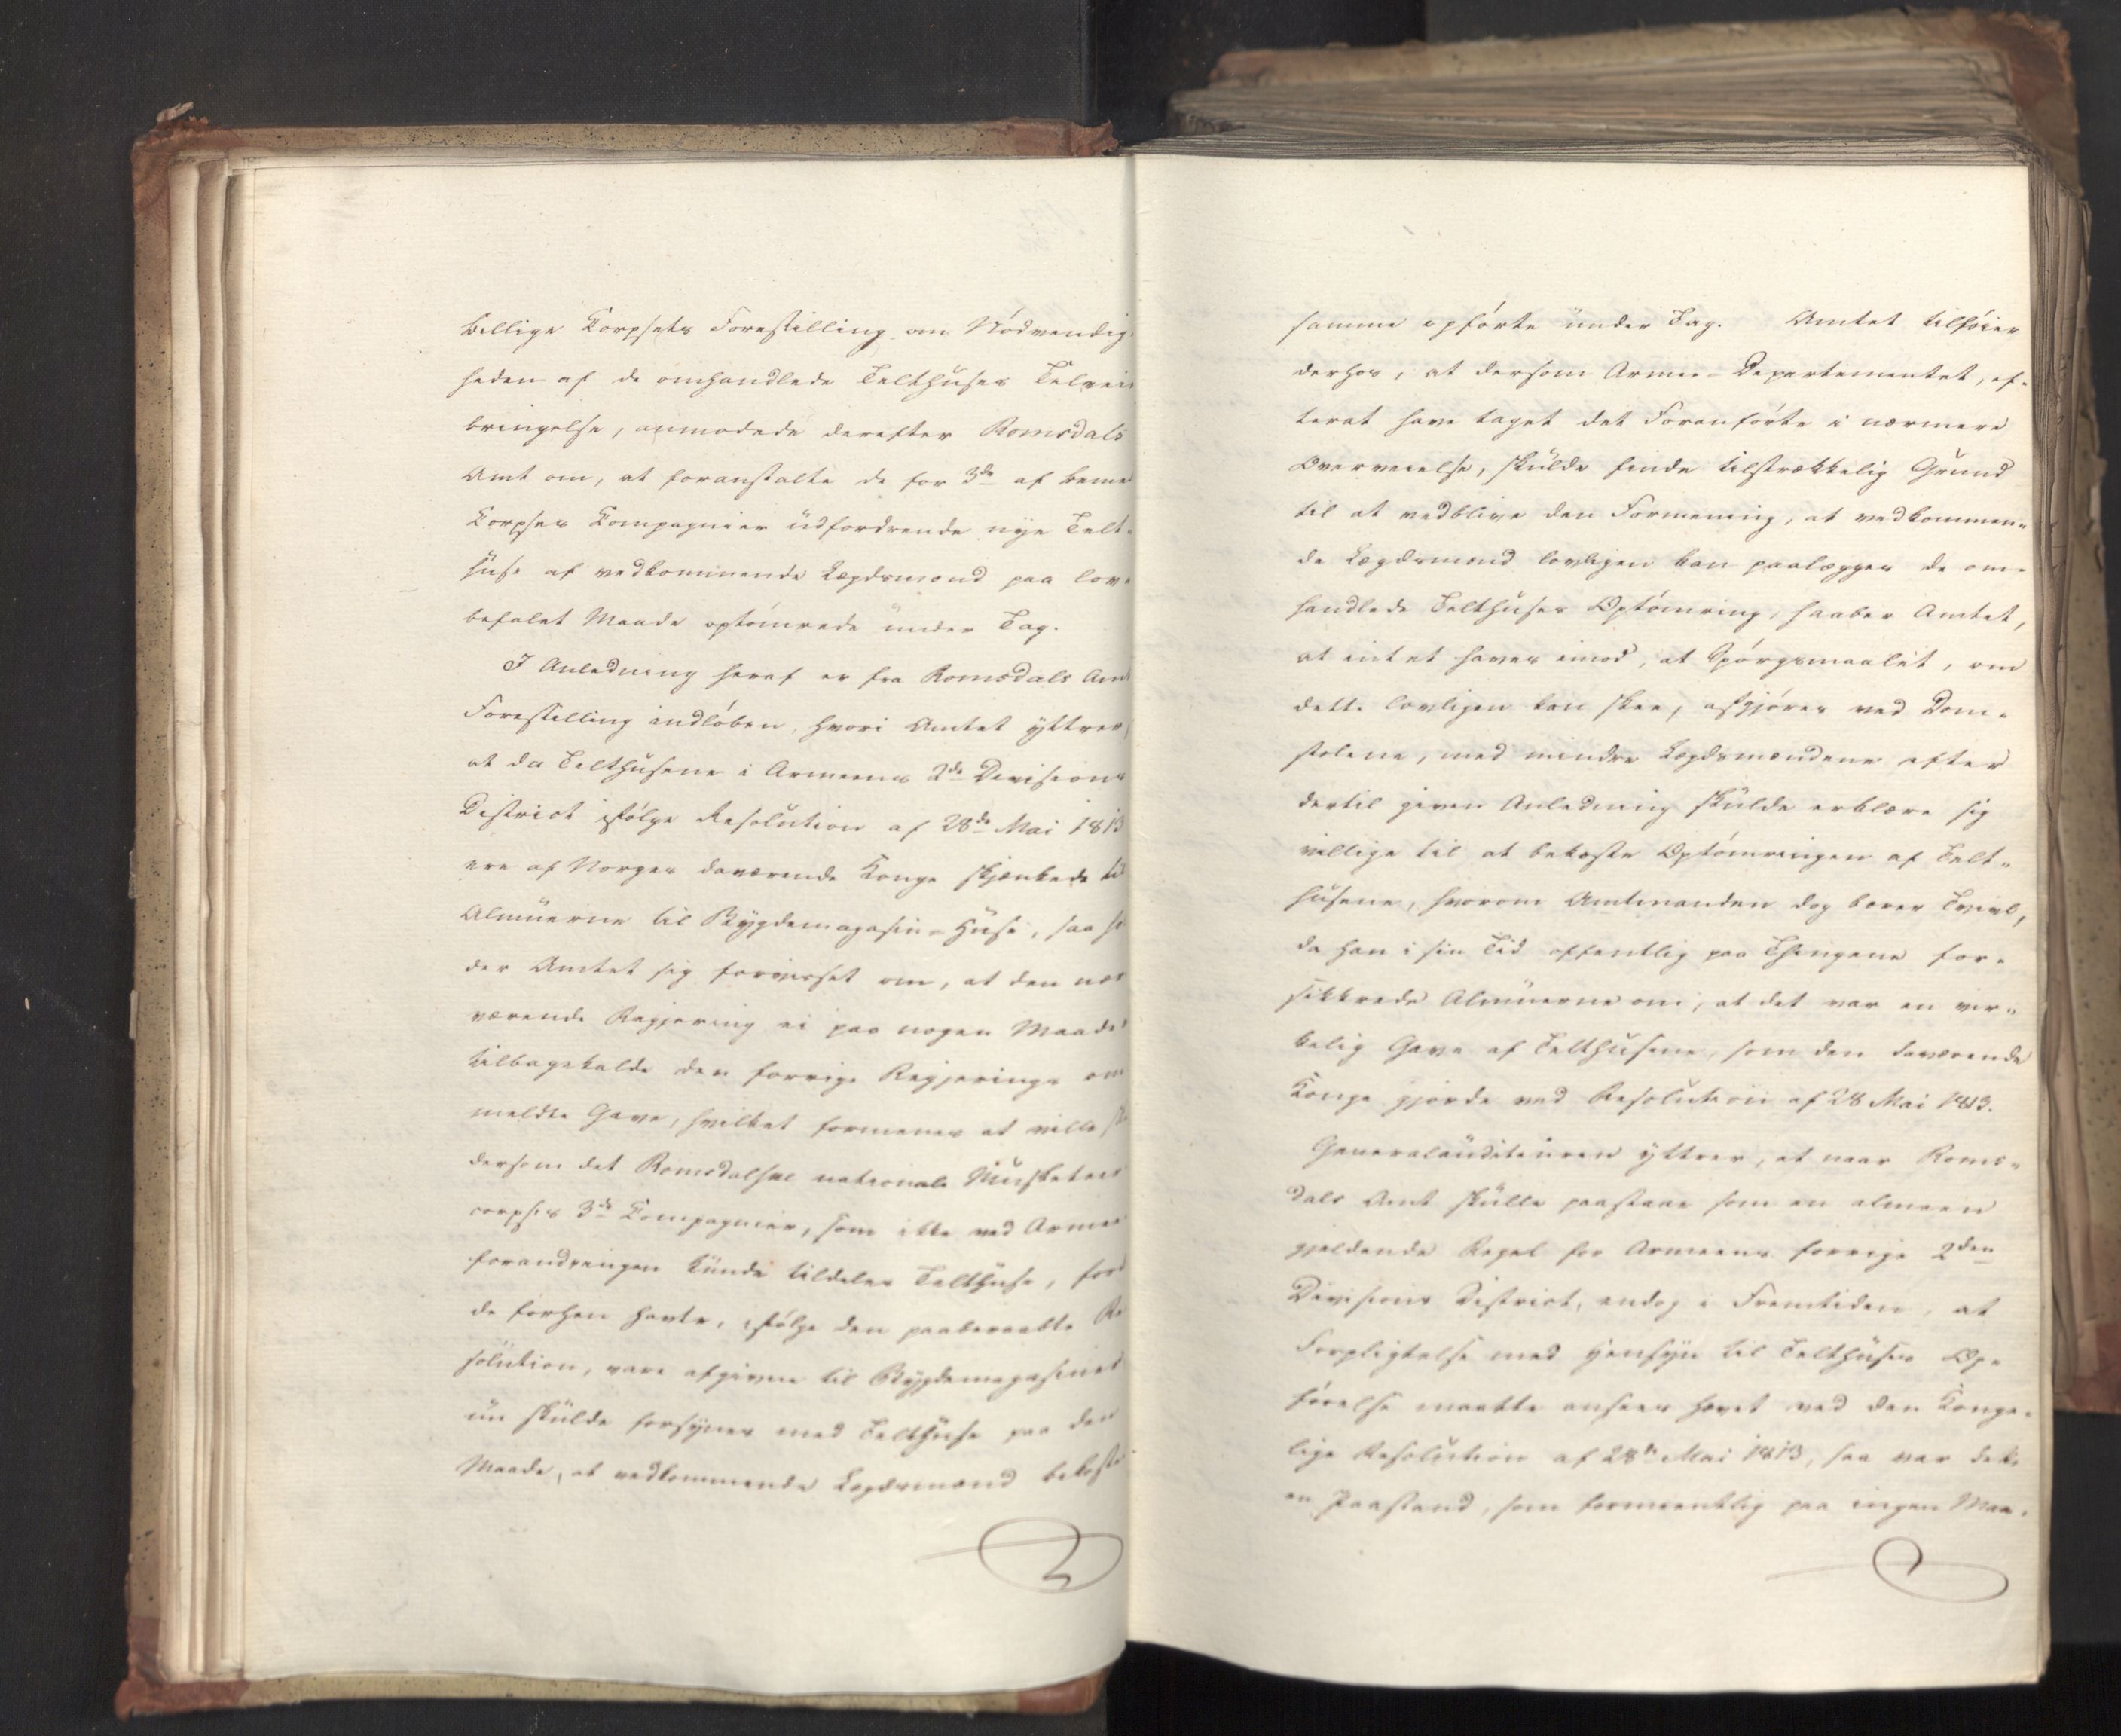 billige Corpsets Forestilling om Nödvendig-
heden af de omhandlede Telthuses Tilveie
bringelse, anmodede derefter Romsdals
Amt om, at foranstalte de for 3de af bemel
Corpses Compagnier udfordrende nye Telt-
huse af vedkommende Lægdsmænd paa lov-
befalet Maade optömrede under Tag.
I Anledning heraf er fra Romsdals Amt
Forestilling indlöben, hvori Amtet yttrer,
at da Telthusene i Armeens 2de Divisions
District ifölge Resolution af 28de Mai 1813
ere af Norges daværende Konge skjænkede til
Almuerne til Bygdemagasin-Huse, saa hol
der Amtet sig forvisset om, at den nær
værende Regjering ei paa nogen Maade
tilbagekalde den forrige Regjerings om
meldte Gave, hvilket formenes at ville ske
dersom det Romsdalske nationale Musketeer
corpses 3de Compagnier, som ikke ved Armee
forandringen kunde tildeles Telthuse, fordi
de forhen havte, ifölge den paaberaabte Re
solution, vare afgivne til Bygdemagasiner
nu skulde forsynes med Telthuse paa den
Maade, at vedkommende Lægdsmænd bekoste
samme opförte under Tag. Amtet tilföier
derhos, at dersom Armee-Departementet, ef-
terat have taget det Foranförte i nærmere
Overveielse, skulde finde tilstrækkelig Grund
til at vedblive den Formening, at vedkommen-
de Lægdsmænd lovligen kan paalægges de om-
handlede Telthuses Optömring, haaber Amtet,
at intet haves imod, at Spörgsmaalet, om
dette lovligen kan skee, afgjöres ved Dom-
stolene, med mindre Lægdsmændene efter
dertil given Anledning skulde erklære sig
villige til at bekoste Optömringen af Telt-
husene, hvorom Amtmanden dog bærer Tvivl,
da han i sin Tid offentlig paa Thingene for-
sikkrede Almuerne om, at det var en vir-
kelig Gave af Telthusene, som den daværende
Konge gjorde ved Resolution af 28 Mai 1813.
Generalauditeuren yttrer, at naar Roms-
dals Amt skulle paastaae som en almeen
gjeldende Regel for Armeens forrige 2den
Divisions District, endog i Fremtiden, at
Forpligtelse med Hensyn til Telthuses Op-
förelse maatte ansees hævet ved den Konge-
lige Resolution af 28de Mai 1813, saa var dette
en Paastand, som formeentlig paa ingen Maa-